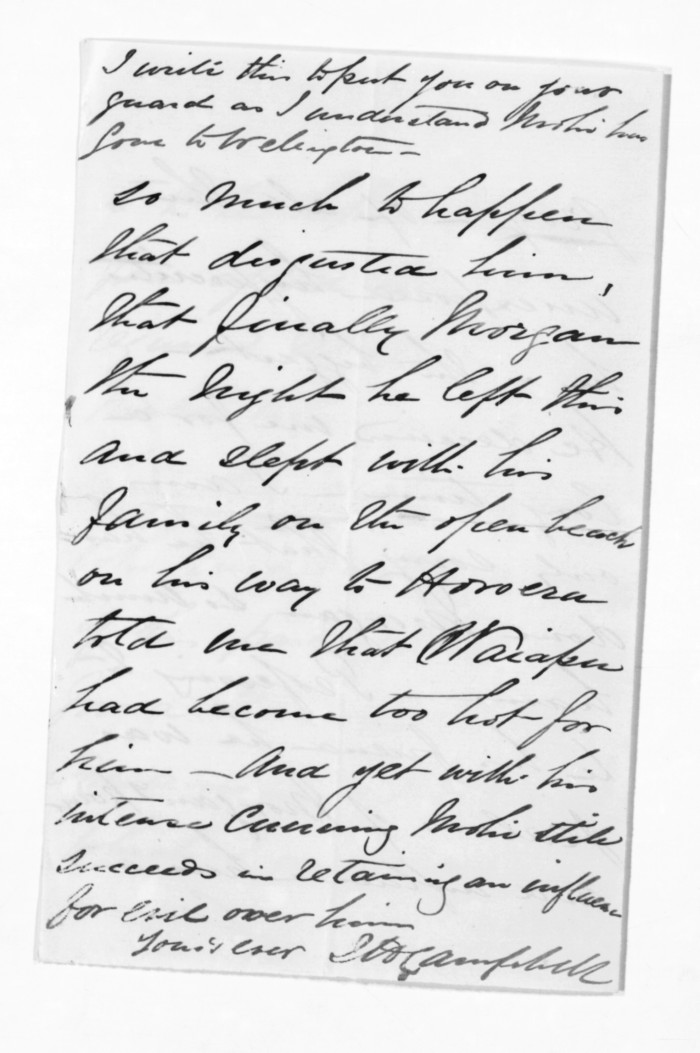 I write this to put you on your
guard as I understand Mohi has
gone to Wellington —
so much to happen
that disgusted him,
that finally Morgan
the night he left this
and slept with his
family on the open beach
on his way to
told me that Waiapu
had become too hot for
him — and yet with his
intense cunning Mohi still
succeeds in retaining an influence
for evil over him
Yours ever Campbell